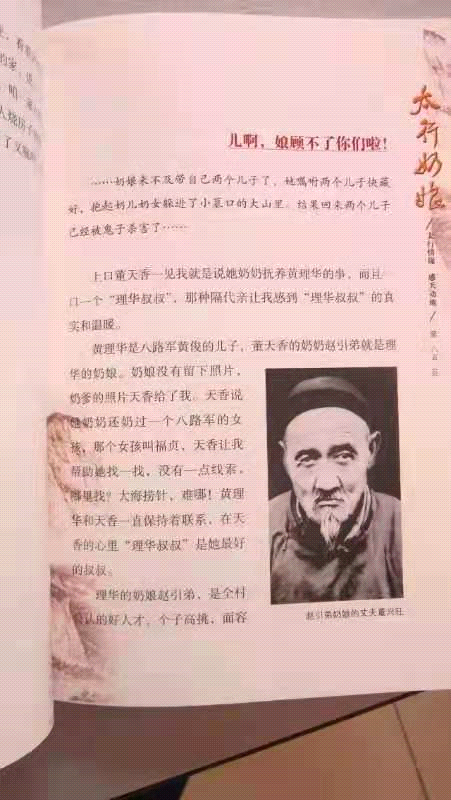 儿啊，娘顾不了你们啦！
……奶娘来不及带自己两个儿子了，她嘱咐两个儿子快藏
好，抱起奶儿奶女躲进了小寨口的大山里。结果回来两个儿子
已经被鬼子杀害了……
上口董天香一见我就是说她奶奶抚养黄理华的事，而且一
口一个“理华叔叔”，那种隔代亲让我感到“理华叔叔”的真
实和温暖。
黄理华是八路军黄俊的儿子，董天香的奶奶赵引弟就是理
华的奶娘。奶娘没有留下照片，
奶爹的照片天香给了我。天香说
她奶奶还奶过一个八路军的女
孩，那个女孩叫福贞，天香让我
帮助她找一找，没有一点线索，
哪里找？大海捞针，难哪！黄理
华和天香一直保持着联系，在天
香的心里“理华叔叔”是她最好
的叔叔。
理华的奶娘赵引弟，是全村
公认的好人才，个子高挑，面容
赵引弟奶娘的丈夫董兴旺
太行奶娘
太行情缘 感天动地